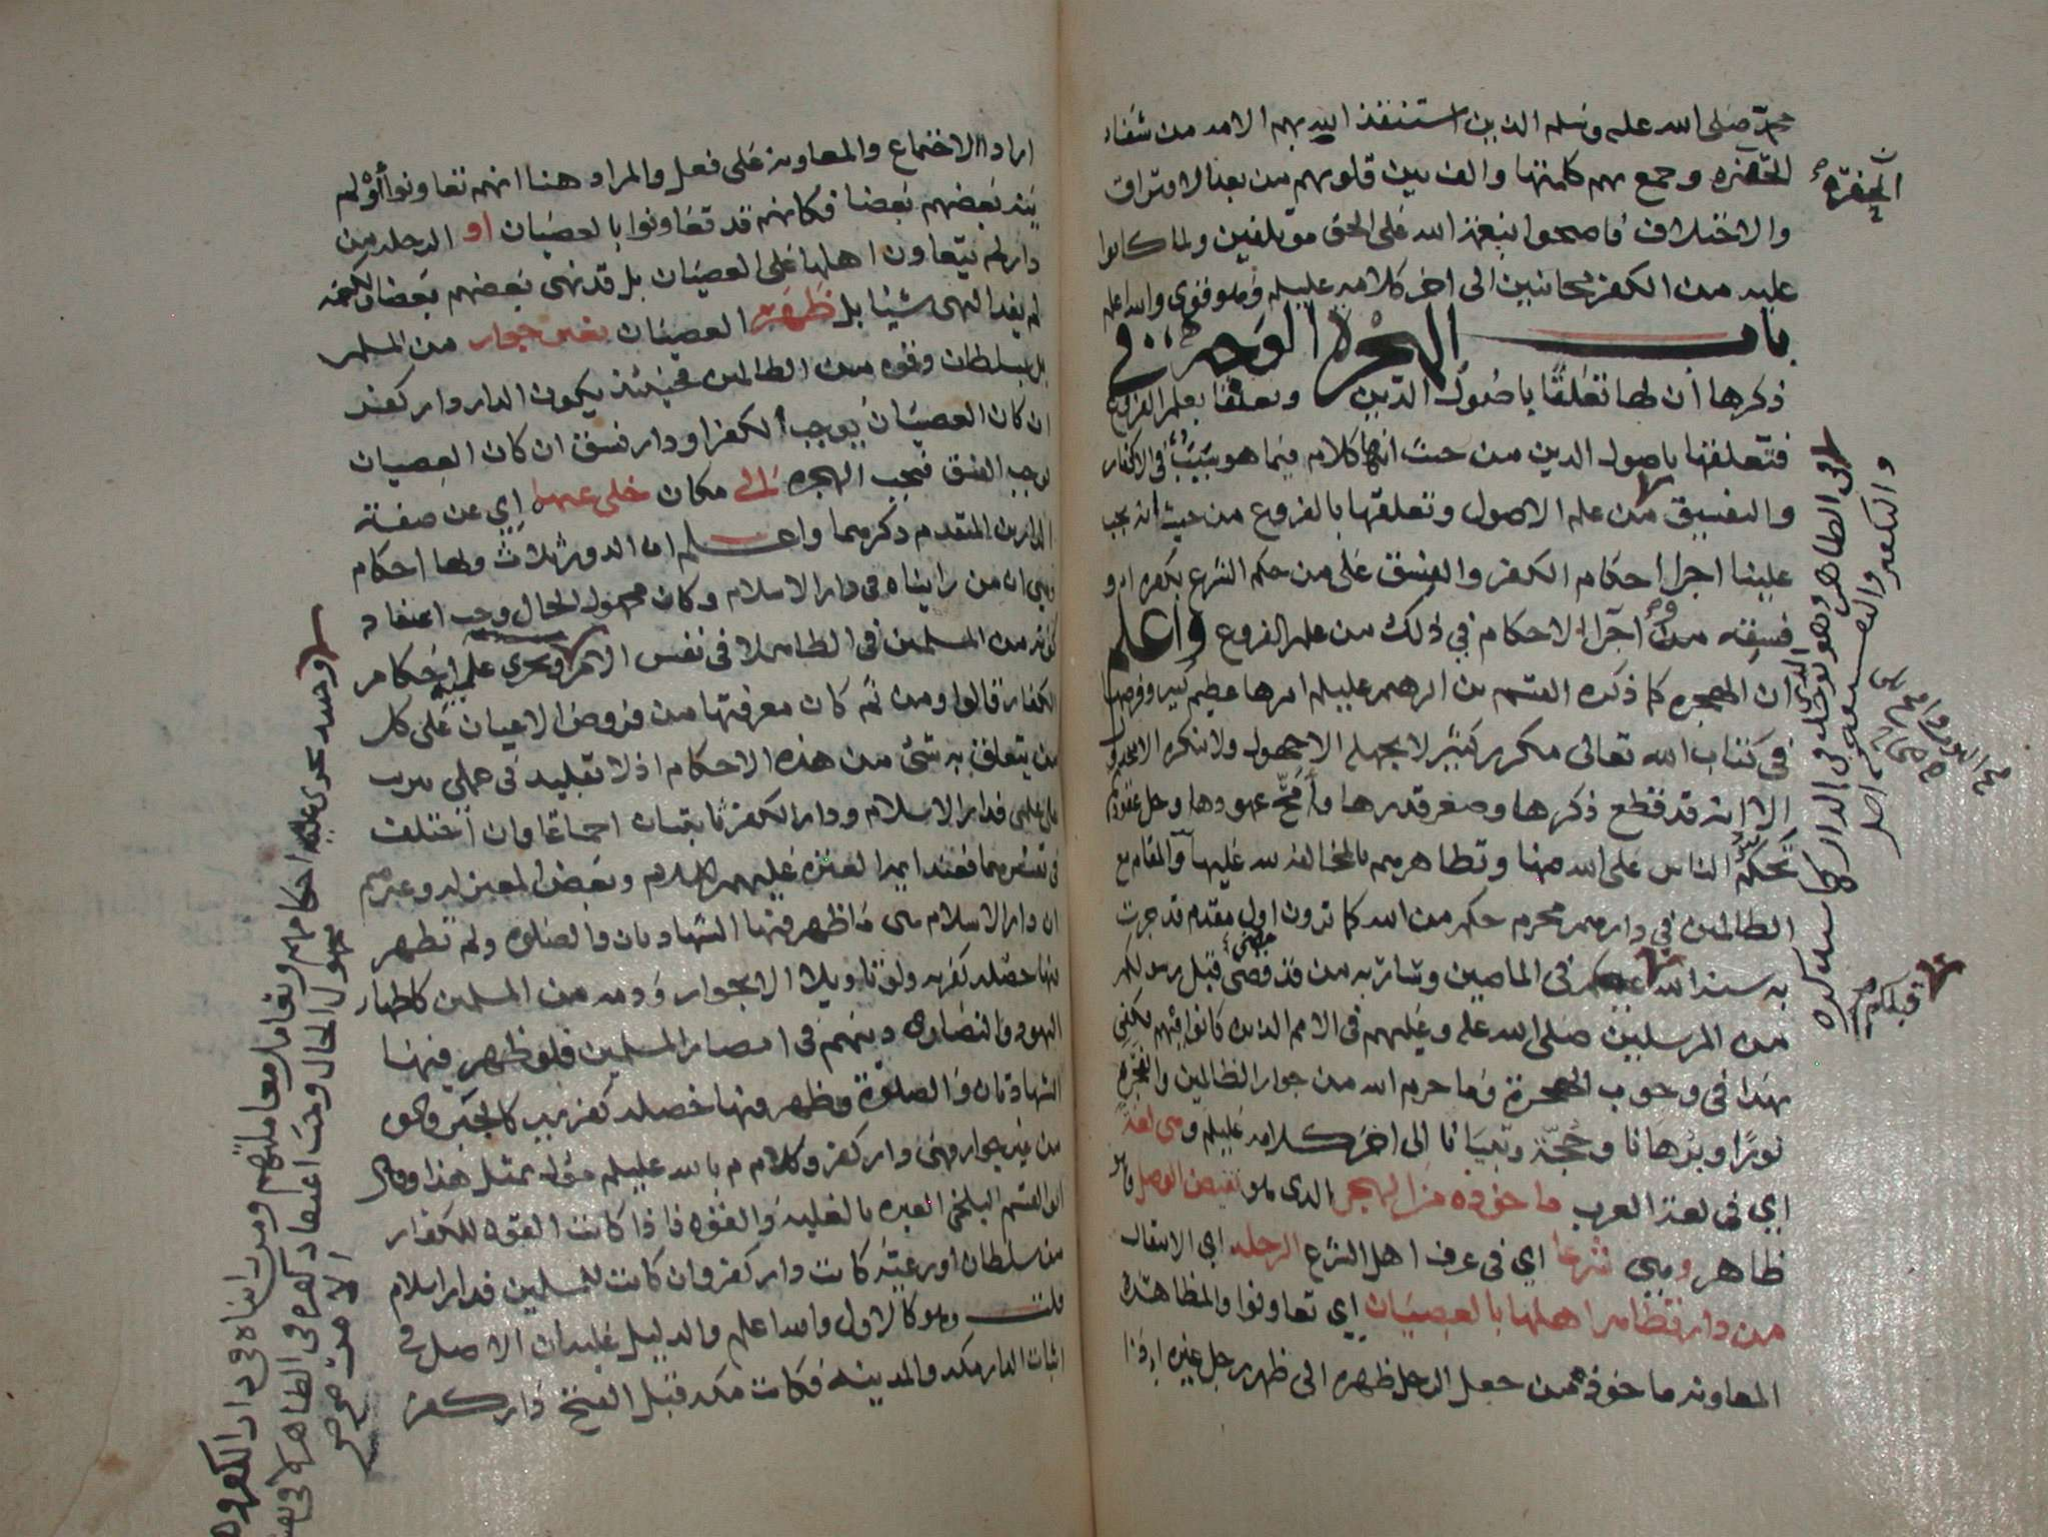 محمد صلى الله عليه وسلم الذين استنقذ الله بهم الامه من شفاء
الحفره وجمع بهم كلمتها والف بين قلوبهم من بعد الافتراق
والاختلاف فاصبحوا بنعمة الله على الحق موتلفين ولما كانوا
عليه من الكفر مجانبين الى اخر كلامه عليلم وهو قوي والله اعلم
باب الهجره الوجه في
ذكرها أن لها تعلقًا باصول الدين وتعلقا بعلم الفروع
فتعلقها باصول الدين من حيث انها كلام فيما هو سبب في الاكفار
والتفسيق من علم الاصول وتعلقها بالفروع من حيث انه يجب
علينا اجرا احكام الكفر والفسق على من حكم الشرع بكفره او
فسقه من اجرا الاحكام في ذلك من علم الفروع واعلم
أن الهجره كما ذكره القسم بن ابرهيم عليلم امرها عظيم كبير وفرضها
في كتاب الله تعالى مكرر كثير لا يجهله الا جهول ولا ينكره الا
الا انه قد قطع ذكرها وصغر قدرها وا عهودها وحل عقودها
تحكم الناس على الله منها وتظاهرهم بالمخالفة لله عليها والمقام مع
الظالمين في دارهم محرم حكم من الله كما ترون اول مقدم قد جرت
به سنة الله في الماضين وسار به من قد قبل رسولكم
من المرسلين صلى الله عليه وعليهم في الامم الذين كانوا فيهم يكفي
بهذا في وجوب الهجرة وما حرم الله من جوار الظالمين والفجره
نورًا وبرهانا وحجّة وتبيانا الى اخر كلامه عليلم وهي لغة
اي في لغة العرب ماخوذه من الهجر الذي هو نقيض الوصل
ظاهر وهي شرعا اي في عرف اهل الشرع الرحله اي الانتقال
من دار تظاهر اهلها بالعصيان اي تعاونوا والمظاهرة
المعاونه ماخوذ ممن جعل الرجل ظهره الى ظهر رجل غيره اذا
الحفره
في الظاهر وهو
والتكفير والتفسيق
الذي توغل في الدار كما سيذكره
قبلكم
ارادا الاجتماع والمعاونة على فعل والمراد هنا انهم تعاونوا أو لم
ينه بعضهم بعضا فكانهم قد تعاونوا بالعصيان او الرحله من
دار لم يتعاون اهلها على العصيان بل قد نهى بعضهم بعضا ولكنه
لم يفد النهي شيئا بل ظهر العصيان بغير جوار من المسلمين
بل بسلطان وقوه من الظالمين فحينئذ يكون الدار دار كفر
ان كان العصيان يوجب الكفر او دار فسق ان كان العصيان
يوجب الفسق فتجب الهجره الى مكان خلي عنهما اي عن صفة
الدارين المتقدم ذكرهما واعلم ان الدور ثلاث ولها احكام
وهي ان من رايناه في دار الاسلام وكان مجهول الحال وجب اعتقاد
كونه من المسلمين في الظاهر لا في نفس الامر وتجري عليه احكام
الكفار قالوا ومن ثم كان معرفتها من فروض الاعيان على كل
من يتعلق به شي من هذه الاحكام اذ لا تقليد في عملي يترتب
على علمي فدار الاسلام ودار الكفر ثابتتان اجماعًا وان اختلف
في تفسيرهما فعند ايمة العتره عليهم السلام وبعض المعتزله وغيرهم
ان دار الاسلام هي ما ظهر فيها الشهادتان والصلوه ولم تظهر
فيها خصله كفريه ولو تاويلا الا بجوار وذمه من المسلمين كاظهار
اليهود والنصارى دينهم في امصار المسلمين فلو ظهر فيها
الشهادتان والصلوة وظهر فيها خصله كفريه كالجبر
من غير جوار فهي دار كفر وكلام م بالله عليلم مثل هذا وقال
ابو القسم البلخي العبره بالغلبه والقوه فاذا كانت القوه للكفار
من سلطان او رعيّه كانت دار كفر وان كانت للمسلمين فدار اسلام
قلت وهو كالاول والله اعلم والدليل عليه ان الاصل في
اثبات الدار مكه والمدينه فكانت مكه قبل الفتح دار كفر
تجري عليه احكامهم ونعامله معاملتهم ومن راناه في دار الكفر وهو
مجهول الحال وجب اعتقاد كفره في الظاهر لا في نفس
الامر صح